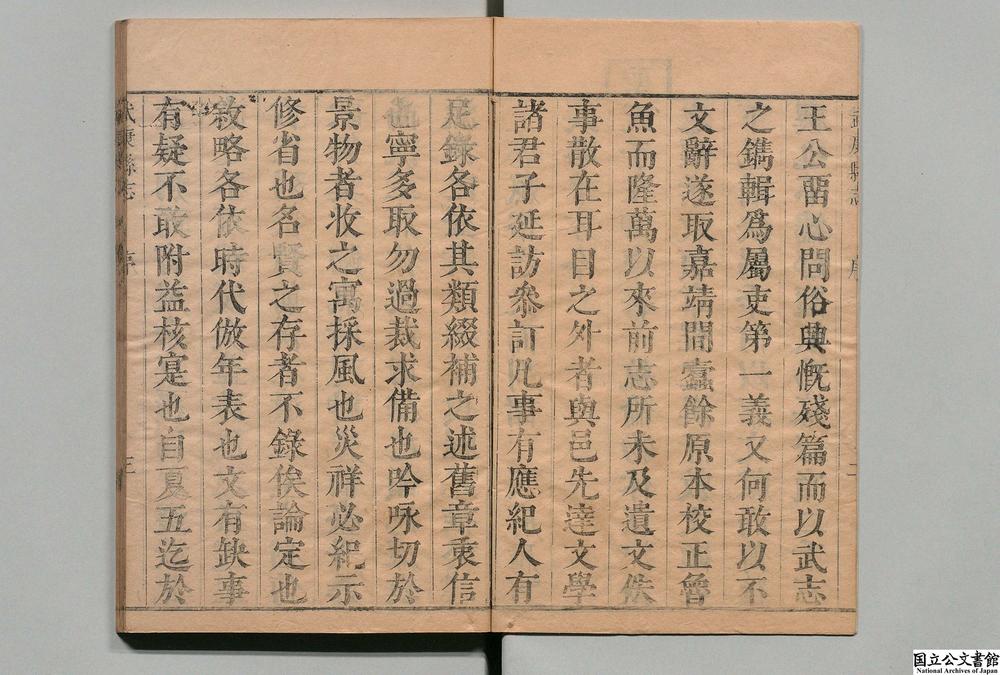 王公畱心問俗興慨殘篇而以武志
之鐫輯爲屬吏第一義又何敢以不
文辭遂取嘉靖間蠧餘原本校正魯
魚而隆萬以來前志所未及遺文佚
事散在耳目之外者與邑先達文學
諸君子延訪叅訂凡事有應紀人有
足錄各依其類綴補之述舊章秉信
也寧多取勿過裁求備也吟咏切於
景物者收之寓採風也災祥必紀示
修省也名賢之存者不錄俟論定也
敘略各依時代倣年表也文有缺事
有疑不敢附益核寔也自夏五迄於
武康縣志
序
三
国立公文書館
National Archives of Japan